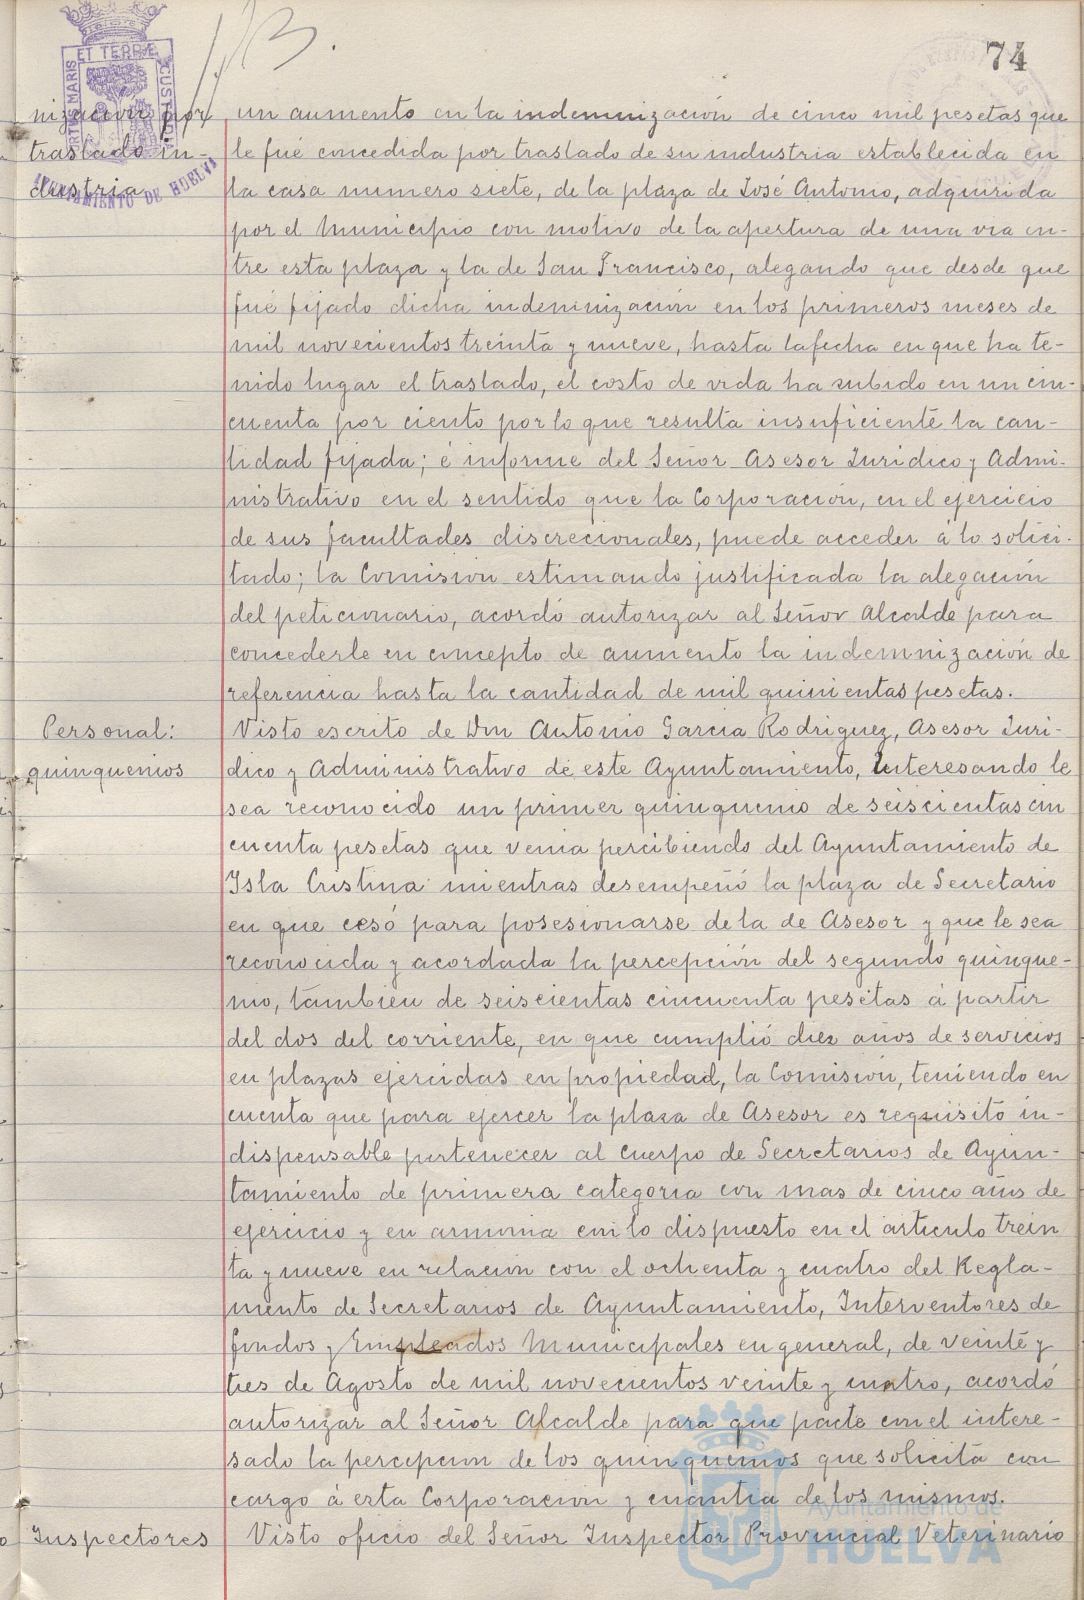 74
nización por
traslado in-
dustria
un aumento en la indemnización de cinco mil pesetas que
le fué concedida por traslado de su industria establecida en
la casa numero siete, de la plaza de José Antonio, adquirida
por el Municipio con motivo de la apertura de una via en-
tre esta plaza y la de San Francisco, alegando que desde que
fué fijado dicha indemnización en los primeros meses de
mil novecientos treinta y nueve, hasta la fecha en que ha te-
nido lugar el traslado, el costo de vida ha subido en un cin-
cuenta por ciento por lo que resulta insuficiente la can-
tidad fijada; é informe del Señor Asesor Juridico y Admi-
nistrativo en el sentido que la Corporación, en el ejercicio
de sus facultades discrecionales, puede acceder á lo solici-
tado; la Comision estimando justificada la alegación
del peticionario, acordó autorizar al Señor Alcalde para
concederle en concepto de aumento la indemnización de
referencia hasta la cantidad de mil quinientas pesetas.
Personal:
quinquenios
Visto escrito de Don Antonio Garcia Rodriguez, Asesor Juri-
dico y Administrativo de este Ayuntamiento, interesando le
sea reconocido un primer quinquenio de seiscientas cin
cuenta pesetas que venia percibiendo del Ayuntamiento de
Isla Cristina mientras desempeñó la plaza de Secretario
en que cesó para posesionarse de la de Asesor y que le sea
reconocida y acordada la percepción del segundo quinque-
nio, tambien de seiscientas cincuenta pesetas á partir
del dos del corriente, en que cumplió diez años de servicios
en plazas ejercidas en propiedad, la Comisión, teniendo en
cuenta que para ejercer la plaza de Asesor es requisito in-
dispensable pertenecer al cuerpo de Secretarios de Ayun-
tamiento de primera categoria con mas de cinco años de
ejercicio y en armonia con lo dispuesto en el articulo trein
ta y nueve en relacion con el ochenta y cuatro del Regla-
mento de Secretarios de Ayuntamiento, Interventores de
fondos y Empleados Municipales en general, de veinte y
tres de Agosto de mil novecientos veinte y cuatro, acordó
autorizar al Señor Alcalde para que pacte con el intere-
sado la percepcion de los quinquenios que solicita con
cargo á esta Corporacion y cuantia de los mismos.
Inspectores
Visto oficio del Señor Inspector Provincial Veterinario
Ayuntamiento de
HUELVA